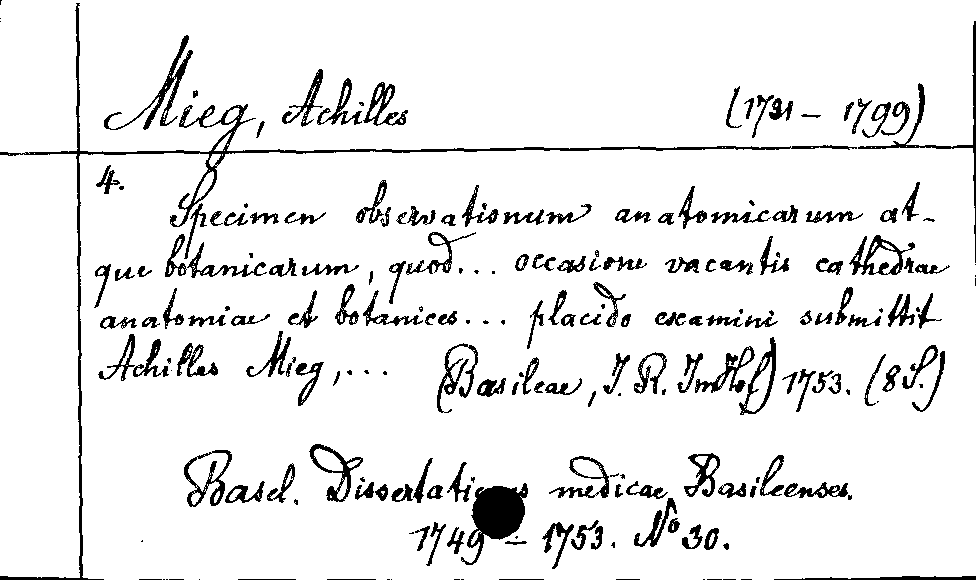 Mieg, Achilles (1731 – 1799)
4.
Specimen observationum anatomicarum at-
que botanicarum, quod... occasione vacantis cathedrae
anatomiae et botanices... placido examini submittit
Achilles Mieg,... (Basileae, J. R. ImHof) 1753. (8 S.)
Basel. Dissertationes medicae Basileenses.
1749 – 1753. No 30.